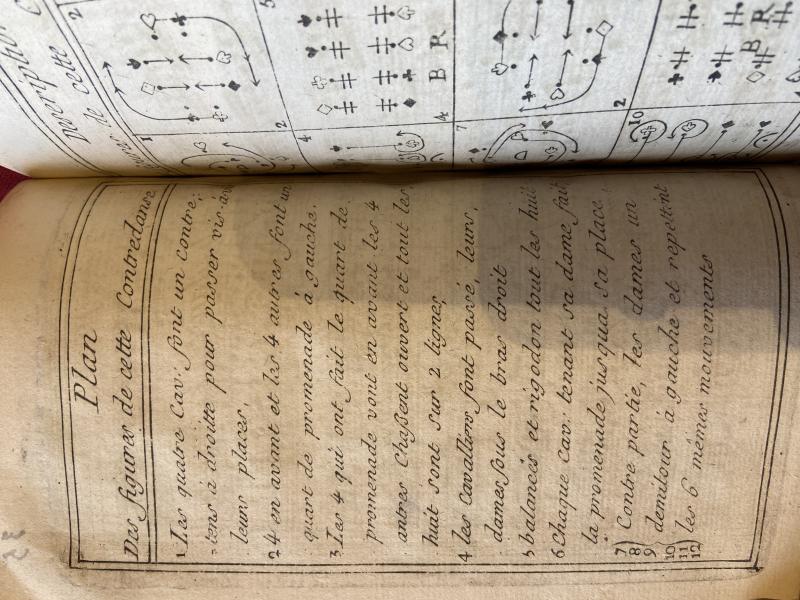 Plan
Des figures de cette Contredanse
1 Les quatre Cav: font un contre,
tens à droitte pour passer vis à vis
leurs places,
2 4 en avant et les 4 autres font un
quart de promenade à gauche.
3 Les 4 qui ont fait le quart de
promenade vont en avant les 4
autres Chassent ouvert et tout les
huit sont sur 2 lignes,
4 les Cavalliers font passé, leurs,
dames sous le bras droit
5 balancés et rigodon tout les huit
6 Chaque Cav: tenant sa dame fait
la promenade jusqua sa place.
7) Contre partie, les dames un
8)
9 demitour à gauche et repettent
10
11 les 6 mêmes mouvements
12)
de cette
1
2
2
4
5
B R
4
7
2
10
B R